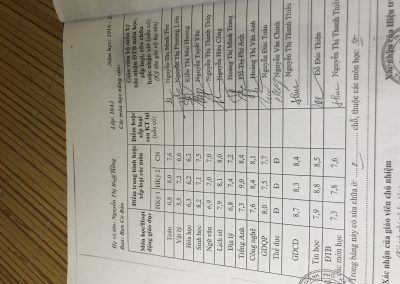 Họ và tên: Nguyễn Thị Bình
Lớp: 10A1
Năm học: 2016 - 2
Ban: Ban Cơ Bản
Các môn học nâng cao:
Môn học/Hoạt động giáo dục
Điểm trung bình hoặc xếp loại các môn
HKỳ 1 HKỳ 2 CN
Điểm hoặc xếp loại sau KT lại (nếu có)
Giáo viên bộ môn ký xác nhận ĐTB môn học, xếp loại, sửa chữa hoặc nhận xét (nếu có)
(Ký và ghi rõ họ tên)
Toán 6,8 8,0 7,6 Nguyễn Thị Minh
Vật lý 5,5 7,2 6,6 Nguyễn Thị Phương Liên
Hóa học 6,3 6,2 6,2 Kiều Thị Mai Hương
Sinh học 8,2 7,1 7,5 Nguyễn Tuyết Vân
Ngữ văn 6,9 7,0 7,0 Nguyễn Thị Thanh Thủy
Lịch sử 7,9 8,1 8,0 Nguyễn Hữu Công
Địa lý 6,8 7,4 7,2 Hoàng Thị Minh Trang
Tiếng Anh 7,3 9,0 8,4 Đỗ Thị Phi Anh
Công nghệ 7,6 8,4 8,1 Hoàng Thị Vân Anh
GDQP 8,0 7,5 7,7 Nguyễn Đức Toàn
Thể dục Đ Đ Đ Nguyễn Văn Chinh
GDCD 8,7 8,3 8,4 Nguyễn Thị Thanh Thiều
Tin học 7,9 8,8 8,5 Đỗ Đức Thiện
ĐTB các môn học 7,3 7,8 7,6 Nguyễn Thị Thanh Thiều
Trong bảng này có sửa chữa ở: chỗ, thuộc các môn học:
Xác nhận của giáo viên chủ nhiệm
Xác nhận của Hiệu tr